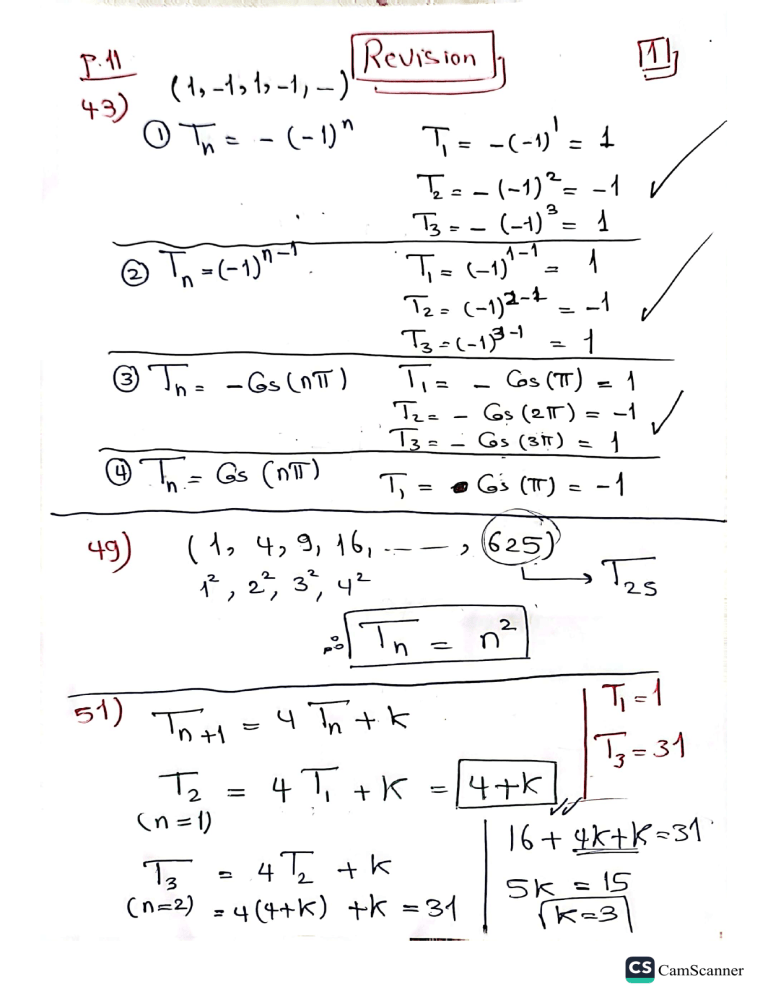 P.11
Revision
1
43)
(1, -1, 1, -1, ...)
① Tₙ = - (-1)ⁿ
T₁ = -(-1)¹ = 1
T₂ = - (-1)² = -1 ✓
T₃ = - (-1)³ = 1
② Tₙ = (-1)ⁿ⁻¹
T₁ = (-1)¹⁻¹ = 1
T₂ = (-1)²⁻¹ = -1 ✓
T₃ = (-1)³⁻¹ = 1
③ Tₙ = - Cos (nπ)
T₁ = - Cos (π) = 1
T₂ = - Cos (2π) = -1 ✓
T₃ = - Cos (3π) = 1
④ Tₙ = Cos (nπ)
T₁ = Cos (π) = -1
49) (1, 4, 9, 16, ------, 625)
→ T₂₅
1², 2², 3², 4²
∴ Tₙ = n²
51) Tₙ₊₁ = 4 Tₙ + k
T₁ = 1
T₃ = 31
T₂ = 4 T₁ + K = 4+K
(n=1)
T₃ = 4 T₂ + k
(n=2) = 4(4+K) + K = 31
16 + 4K+K = 31
5K = 15
K=3
CS CamScanner